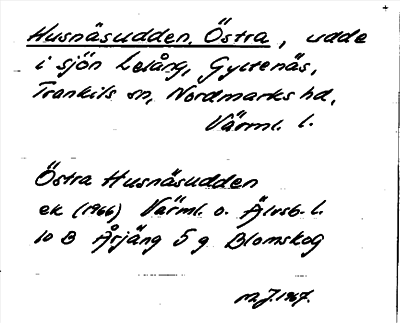 Husnäsudden, Östra, udde
i sjön Lelång, Gyltenäs,
Trankils sn, Nordmarks hd,
Värml. l.
Östra Husnäsudden
ek (1966) Värml. o. Älvsb. l.
10 B Årjäng 5 g Blomskog
M.J. 1967.